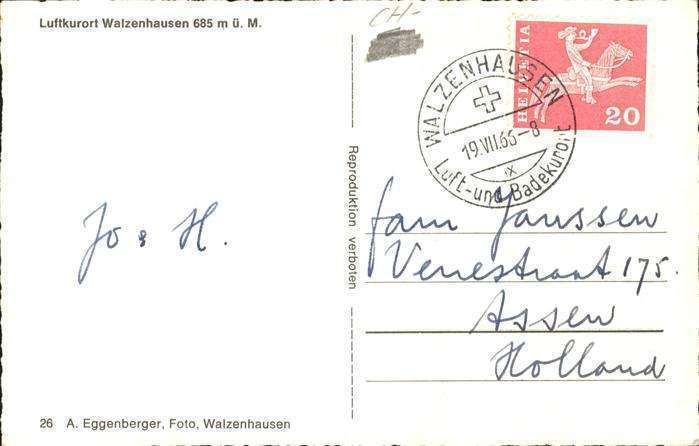 Luftkurort Walzenhausen 685 m ü. M.
CH-
HELVETIA
20
WALZENHAUSEN
19.VII.66-8
x
Luft-und Badekurort
Reproduktion verboten
Jo & H.
fam Janssen
Venestraat 175.
Assen
Holland
26 A. Eggenberger, Foto, Walzenhausen